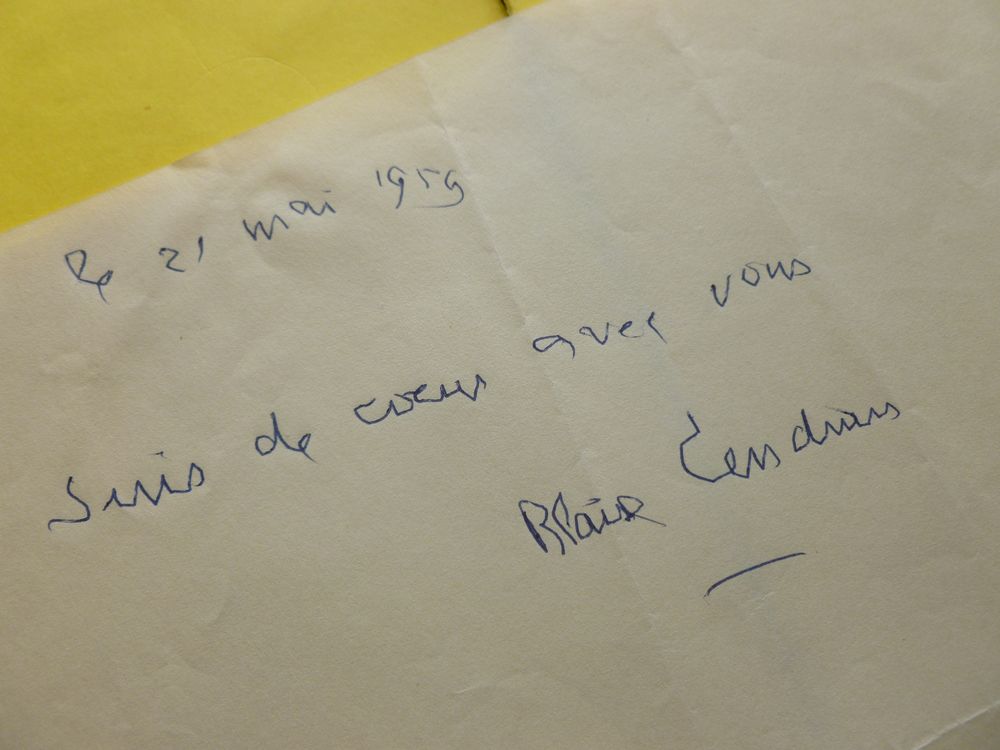 Le 21 mai 1959
Suis de coeur avec vous
Blaise Cendrars